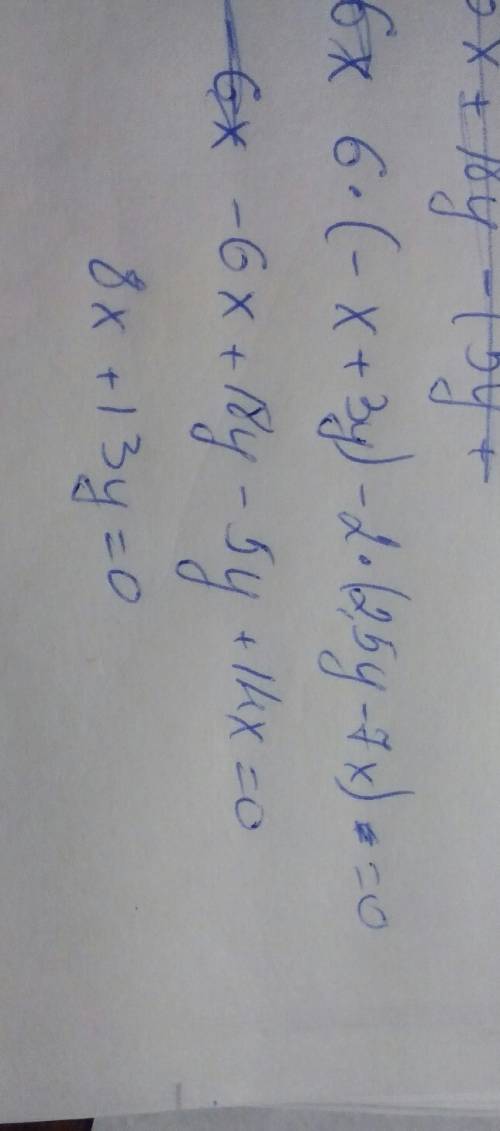 x + 18y - 15y +
6x 6·(-x+3y)-2·(2,5y-7x)=0
-6x -6x+18y-5y+14x=0
8x+13y=0